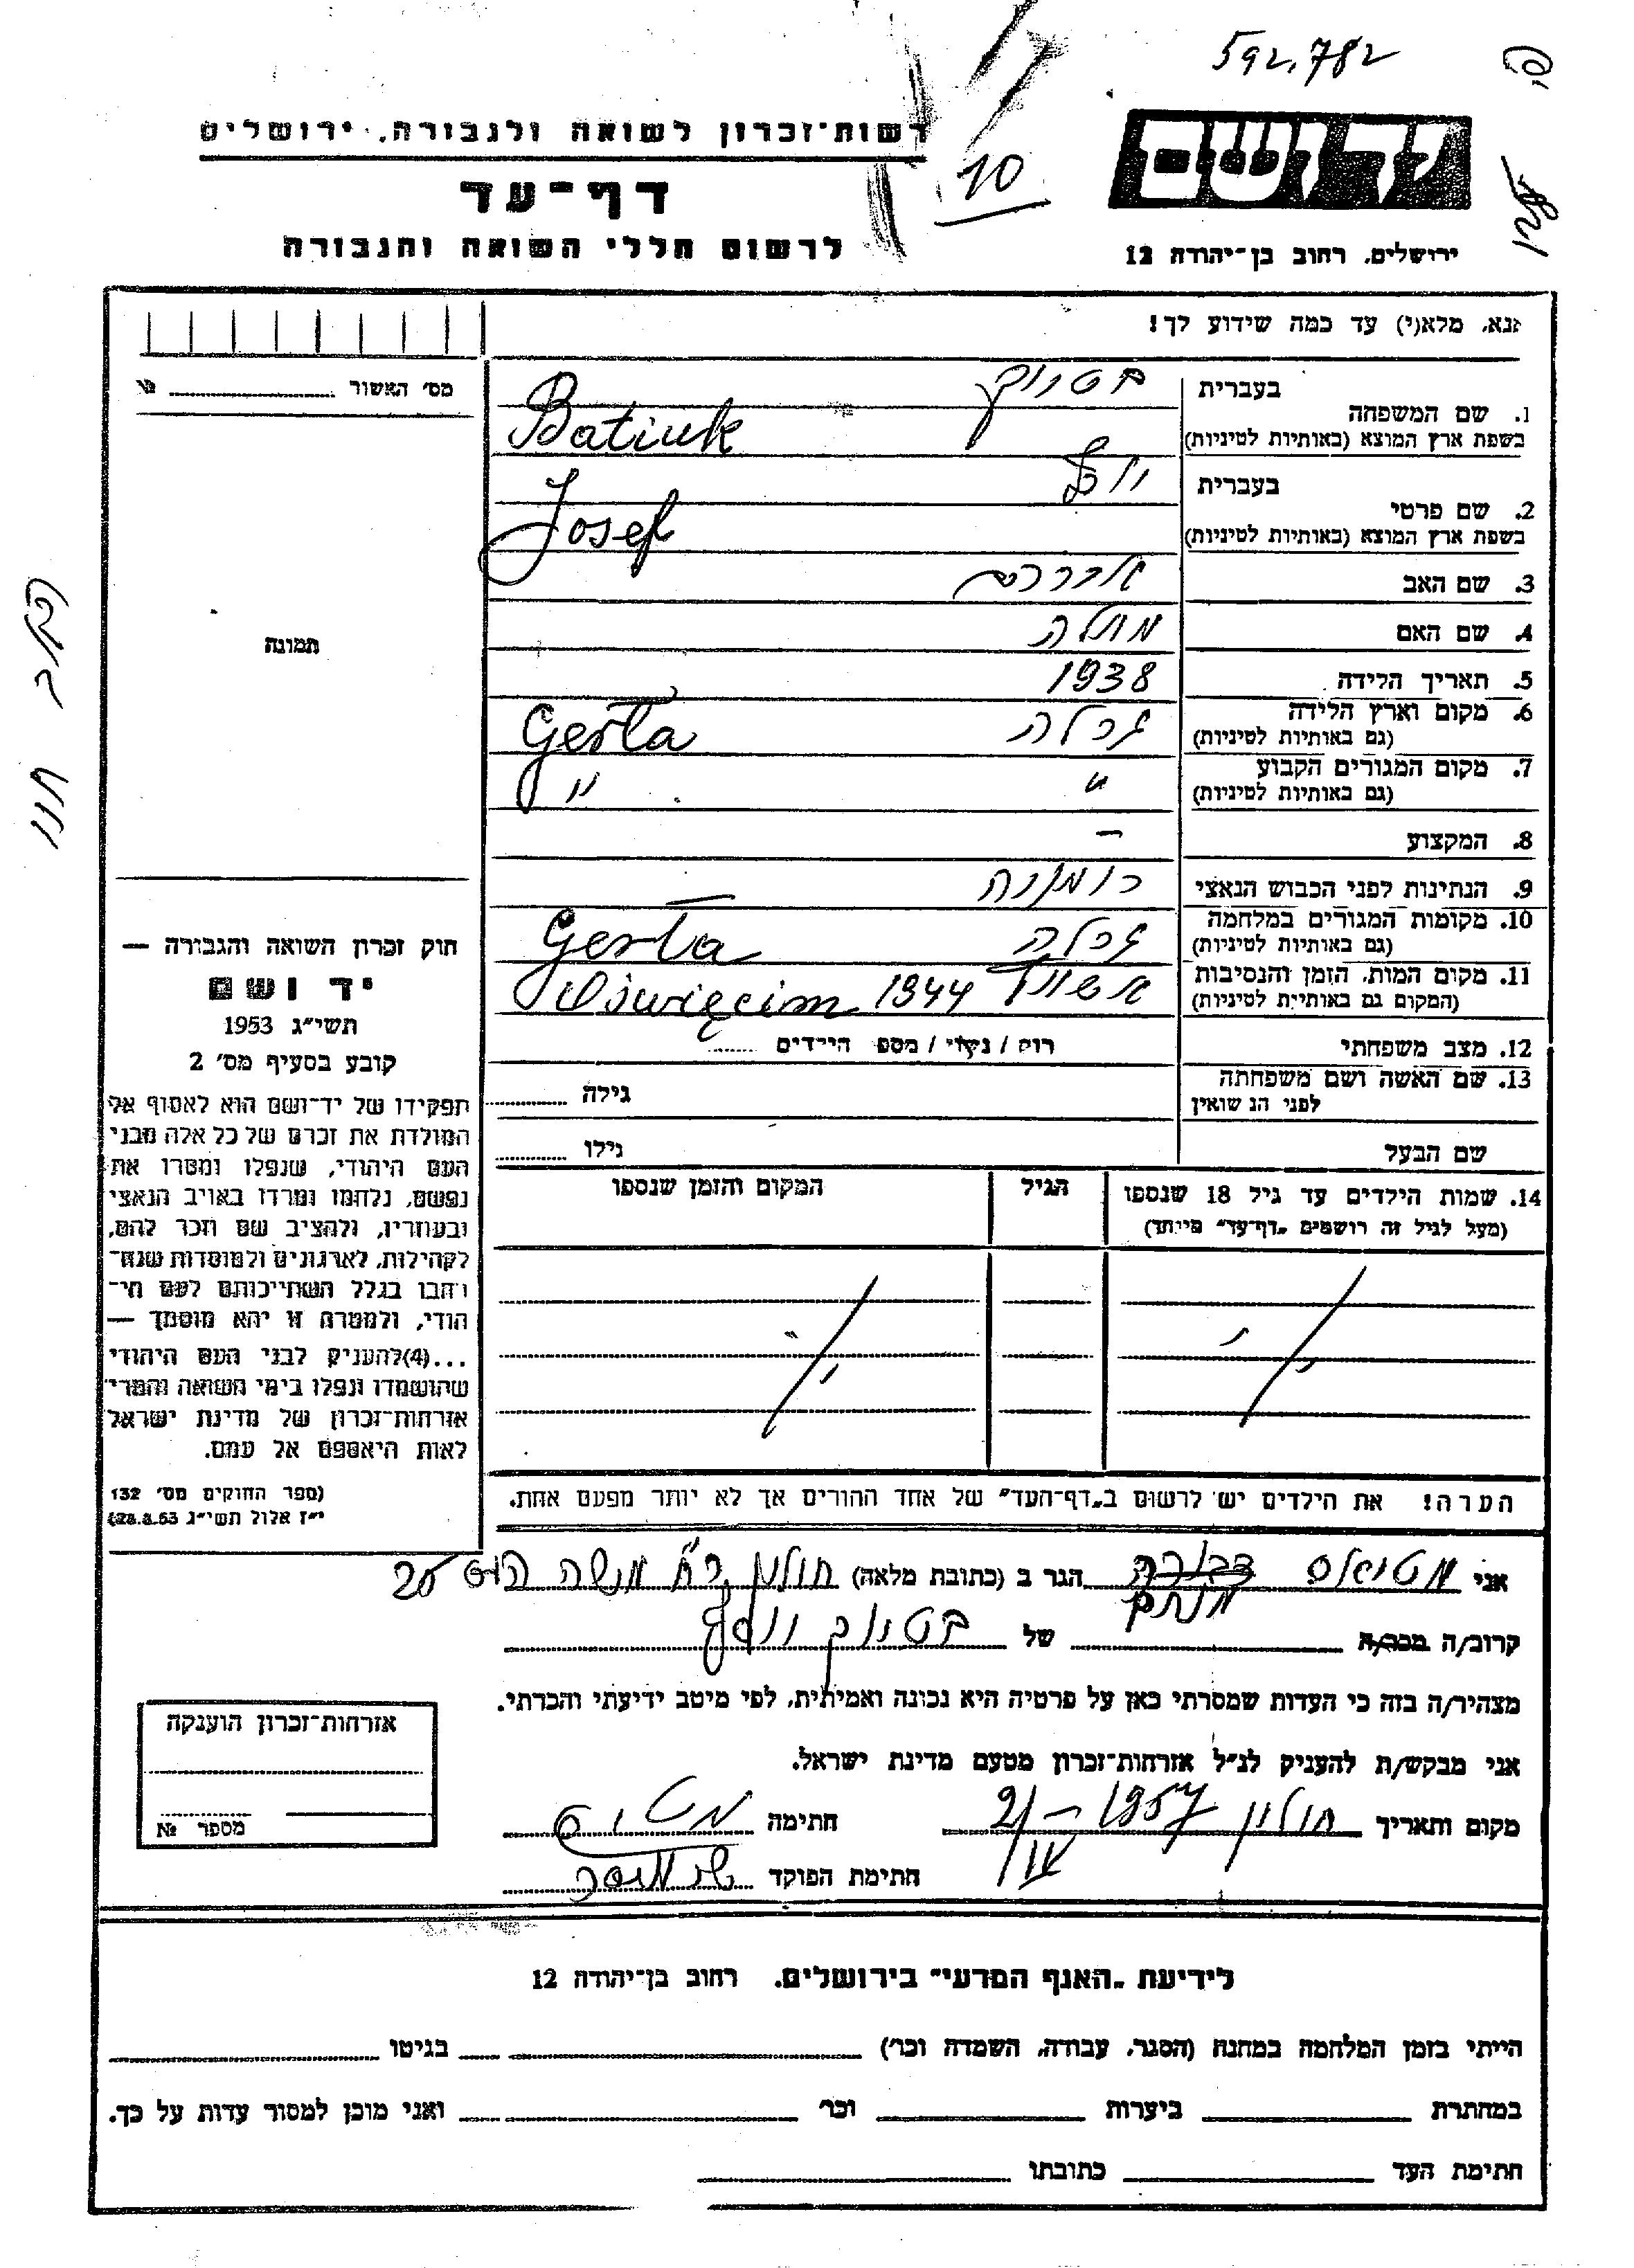 592,782
רשות־זכרון לשואה ולגבורה, ירושלים
10
יד ושם
דף־עד
לרשום חללי השואה והגבורה
ירושלים, רחוב בן־יהודה 12
אנא, מלא(י) עד כמה שידוע לך!
מס׳ האשור
בעברית
1. שם המשפחה
בשפת ארץ המוצא (באותיות לטיניות)
Batiuk
בעברית
2. שם פרטי
בשפת ארץ המוצא (באותיות לטיניות)
Josef
3. שם האב אברהם
4. שם האם
5. תאריך הלידה 1938
6. מקום וארץ הלידה
(גם באותיות לטיניות)
Gerła
7. מקום המגורים הקבוע
(גם באותיות לטיניות)
" "
8. המקצוע –
9. הנתינות לפני הכבוש הנאצי
10. מקומות המגורים במלחמה
(גם באותיות לטיניות)
Gerła
11. מקום המות, הזמן והנסיבות
(המקום גם באותיות לטיניות)
1944 Oświęcim
12. מצב משפחתי רוק / נשוי / מספ הילדים
13. שם האשה ושם משפחתה
לפני הנשואין
גילה
שם הבעל גילו
14. שמות הילדים עד גיל 18 שנספו
(מעל לגיל זה רושמים „דף־עד" מיוחד)
הגיל
המקום והזמן שנספו
תמונה
חוק זכרון השואה והגבורה —
יד ושם
תשי״ג 1953
קובע בסעיף מס׳ 2
תפקידו של יד־ושם הוא לאסוף אל
המולדת את זכרם של כל אלה מבני
העם היהודי, שנפלו ומסרו את
נפשם, נלחמו ומרדו באויב הנאצי
ובעוזריו, ולהציב שם וזכר להם,
לקהילות, לארגונים ולמוסדות שנח־
רבו בגלל השתייכותם לעם הי־
הודי, ולמטרה זו יהא מוסמך —
...(4) להעניק לבני העם היהודי
שהושמדו ונפלו בימי השואה והמרי
אזרחות־זכרון של מדינת ישראל
לאות היאספם אל עמם.
(ספר החוקים מס׳ 132
י״ז אלול תשי״ג 28.8.53)
הערה! את הילדים יש לרשום ב„דף־העד" של אחד ההורים אך לא יותר מפעם אחת.
אני דבורה הגר ב (כתובת מלאה) חולון
קרוב/ה מכר/ה של
מצהיר/ה בזה כי העדות שמסרתי כאן על פרטיה היא נכונה ואמיתית, לפי מיטב ידיעתי והכרתי.
אני מבקש/ת להעניק לנ״ל אזרחות־זכרון מטעם מדינת ישראל.
מקום ותאריך חולון 21/IV – 1957 חתימה
חתימת הפוקד
אזרחות־זכרון הוענקה
מספר №
לידיעת „האגף המדעי" בירושלים, רחוב בן־יהודה 12
הייתי בזמן המלחמה במחנה (הסגר, עבודה, השמדה וכו׳) בגיטו
במחתרת ביערות וכו׳ ואני מוכן למסור עדות על כך.
חתימת העד כתובתו